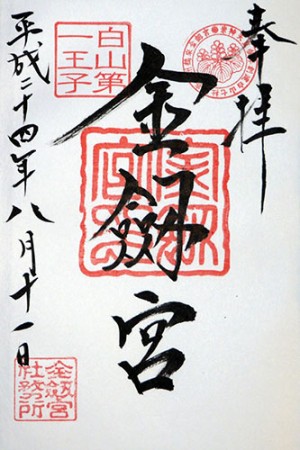 奉拝
金劔宮
白山第
一王子
平成二十四年八月十一日
金劔宮
社務所